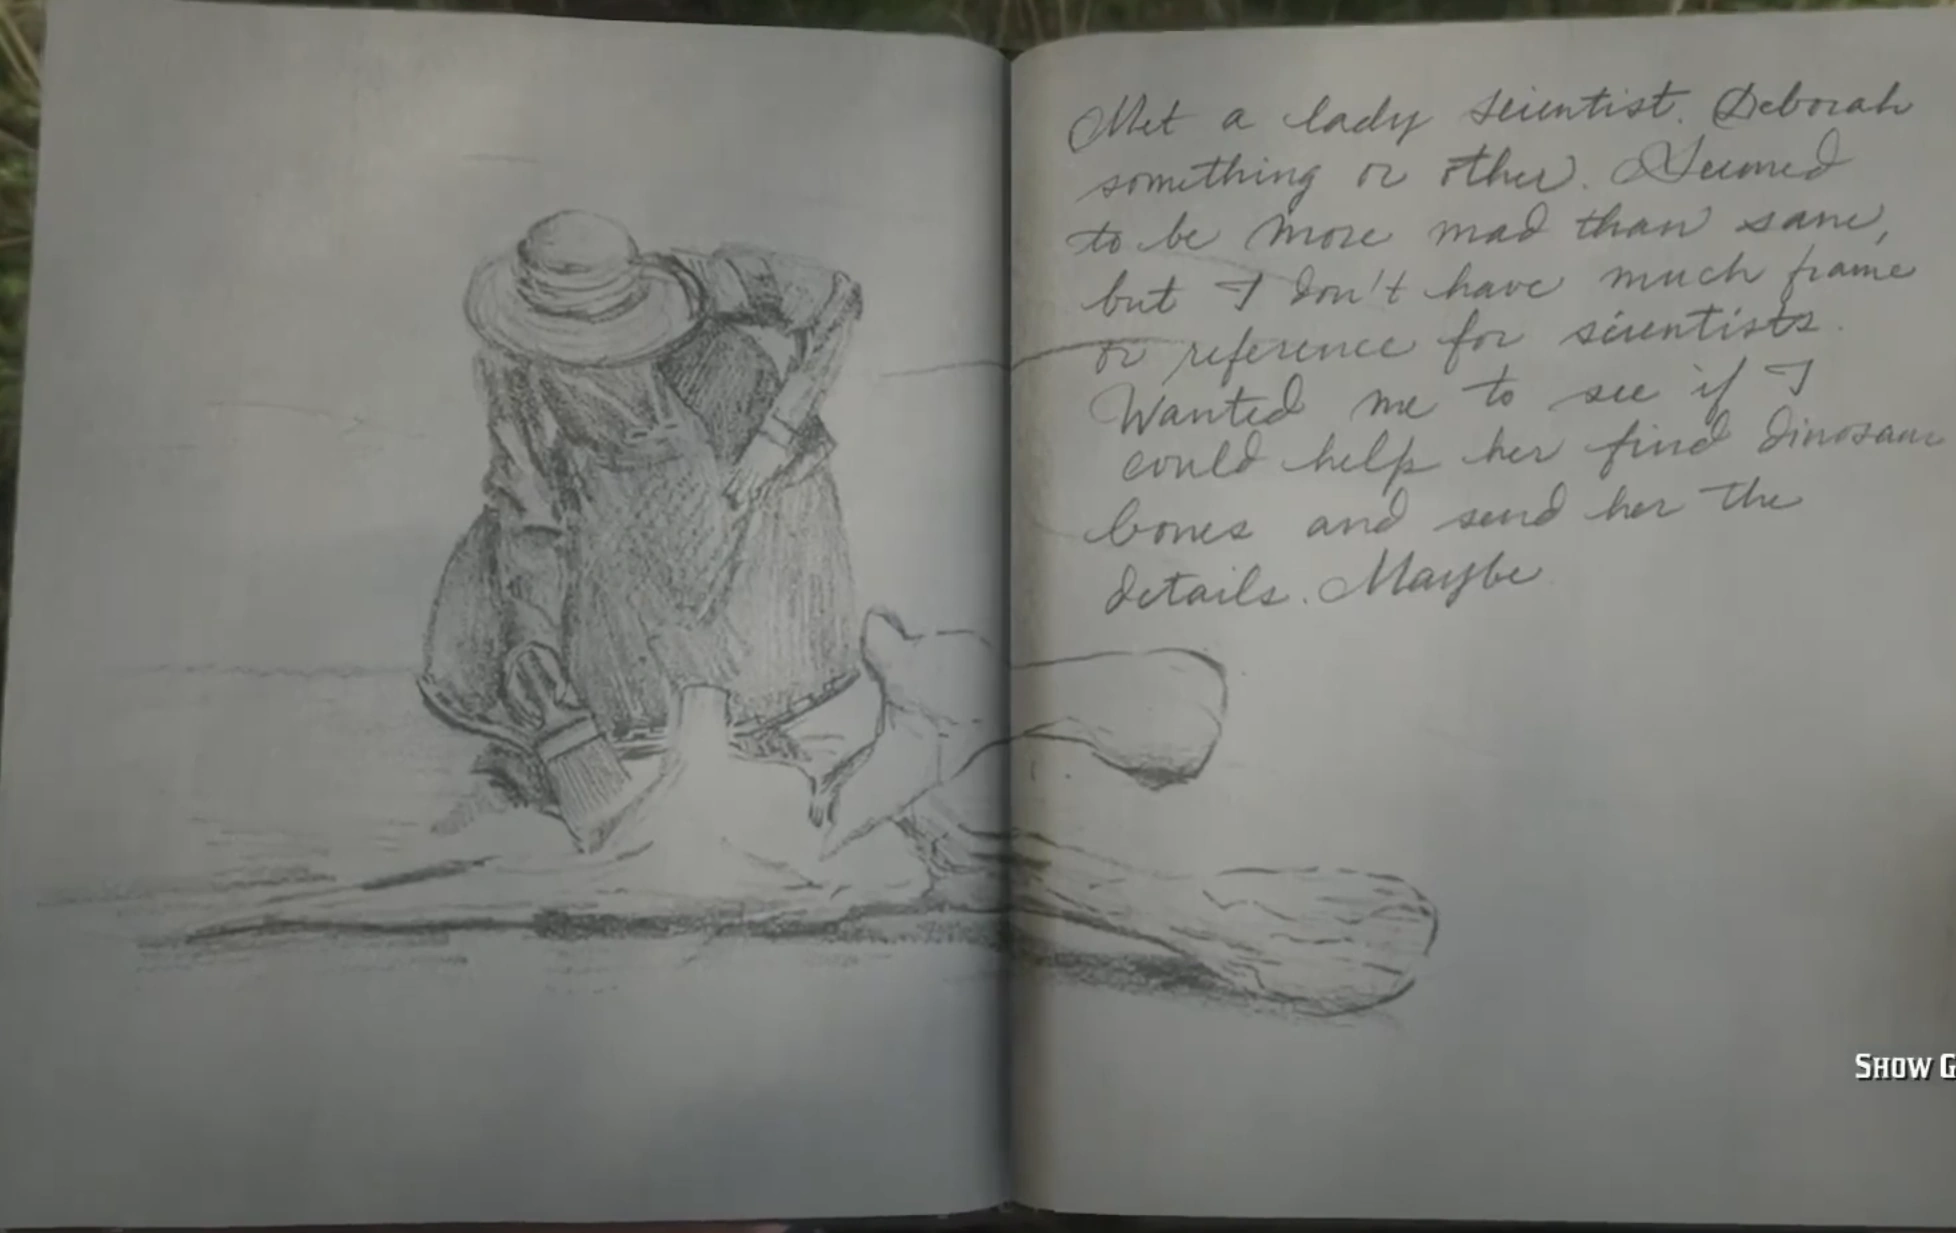 Met a lady scientist. Deborah
something or other. Seemed
to be more mad than sane,
but I don't have much frame
or reference for scientists.
Wanted me to see if I
could help her find dinosaur
bones and send her the
details. Maybe
SHOW G